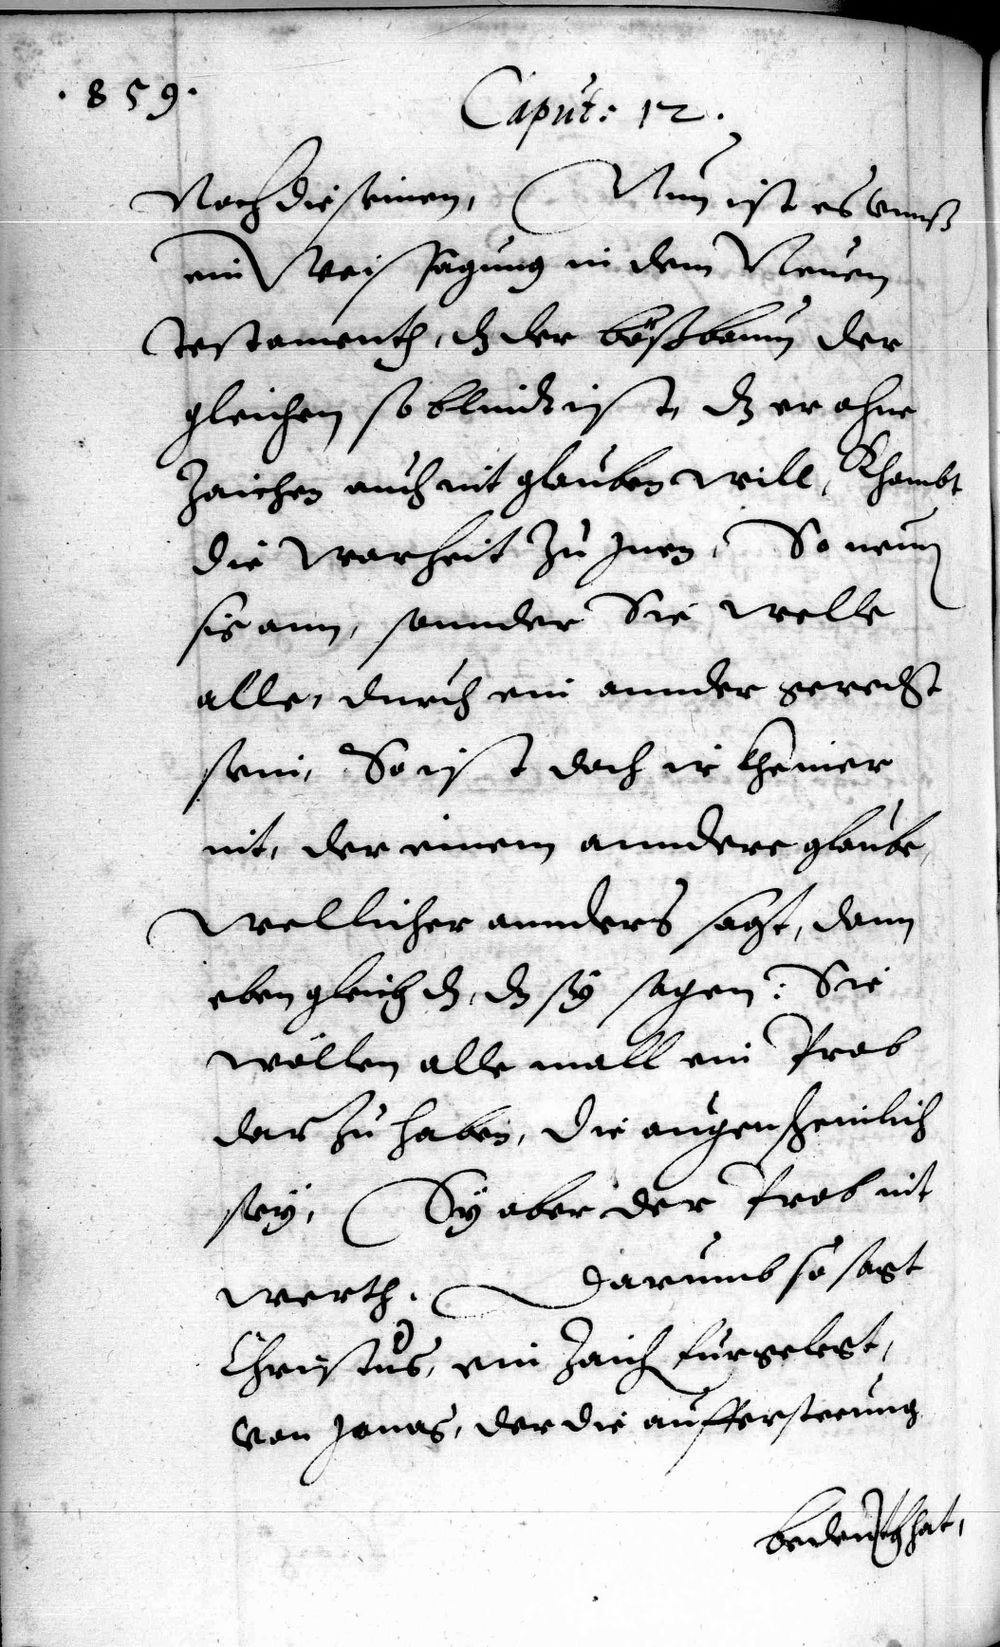 ·859·
Caput: 12.
Noch die seinen, Nun ist es vnnß
ein Weissagung in dem Neuen
Testamenth, dz der bößbaum der
gleichen so blindt ist, dz er ohne
Zaichen auch nit glauben will, Khombt
die warheit zu Jnen, So nem
sis ann, sonnder Sie welle
alle, durch ein annder gerecht
sein, So ist doch ir kheiner
nit, der einem anndere glaube,
wellicher annders sagt, dann
eben gleich dz, dz sÿ sagen: Sie
wöllen alle mall ein Prob
dar zu haben, die augenscheinlich
seÿ, Sÿ aber der Prob nit
werth. Darumb so sagt
Christus, ein Zaich furgelegt,
von Jonas, der die auffersteeung
bedeuth hat,